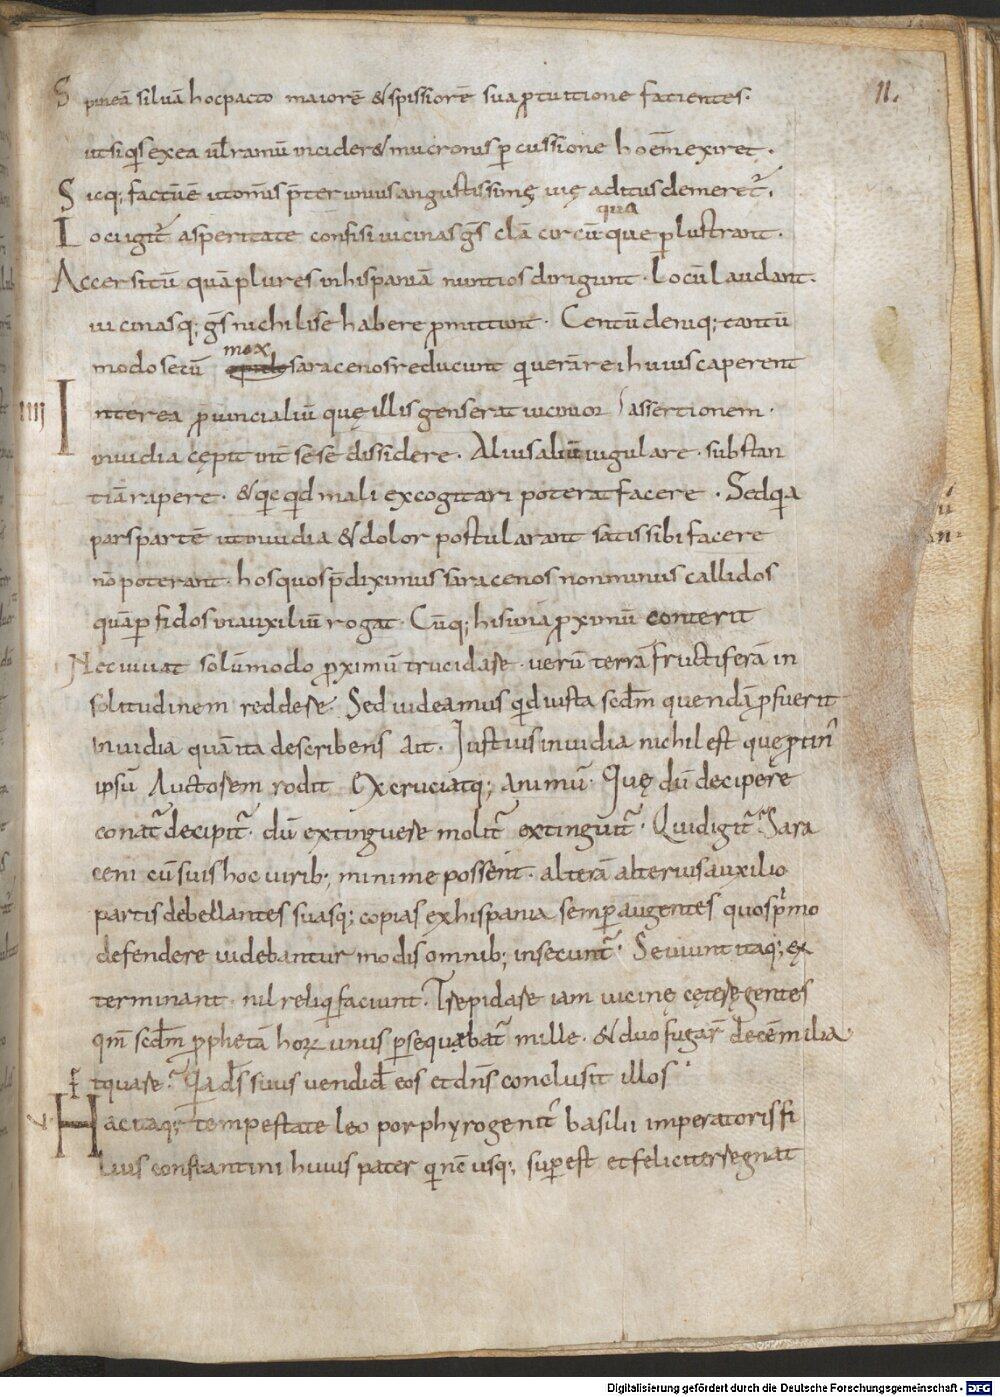 11.
Spineā siluā hoc pacto maiorē & spissiorē sua ꝓtuitione facientes.
ut si q̇s ex ea ul̄ ramū incider& mucronis ꝑcussione hoēm exiret.
Sicq; factū ē ut om̄is p̄ter unius angustissimę uię aditus demeret̄.
qua
Loci igit̄ asperitate confisi uicinas gēs clā circūque ꝑlustrant.
Accersitū quā plures in hispaniā nuntios dirigunt. Locū laudant.
uicinasq; gēs nichili se habere ꝓmittunt. Centū deniq; tantū
mox
modo secū saracenos reducunt qui uerā rei huius caperent
IIII Interea ꝓuincialiū quę illis gens erat uicinior assertionem.
inuidia cępit int̄ sese dissidere. Alius aliū iugulare. substan
tiā rapere. & qicq̇d mali excogitari poterat facere. Sed q̇a
pars partē ut inuidia & dolor postularant satis sibi facere
nō poterant. hos quos p̄diximus saracenos non minus callidos
quā ꝑfidos in auxiliū rogat. Cūq; his una ꝓximū conterit
Nec iuuat solūmodo ꝓximū trucidare. uerū terrā fructiferā in
solitudinem reddere. Sed uideamus q̇d iusta scd̄m quendā ꝓfuerit
inuidia quā ita describens ait. Iustius inuidia nichil est quę ꝓtin̄
ipsū Auctorem rodit Excruciatq; animū. Quę dū decipere
conat̄ decipit̄. dū extinguere molit̄ extinguit̄. Quid igit̄? Sara
ceni cū suis hoc uirib; minime possent. alterā alterius auxilio
partis debellantes suasq; copias ex hispania semꝑ augentes quos p̄mo
defendere uidebantur modis omnib; insecunt̄. Seuiunt itaq; ex
terminant. nil reliq̇ faciunt. Trepidare iam uicinę cęterę gentes
qm̄ scd̄m ꝓphetā hoꝝ unus ꝑsequebat̄ mille. & duo fugar̄ decē milia
Et quare? Q̇a d̄s suus uendid̄ eos et dn̄s conclusit illos.
V Hac itaq; tempestate leo porphyrogenit̄ basilii imperatoris fi
lius constantini huius pater qi nc̄ usq; suꝑest et feliciter regnat
Digitalisierung gefördert durch die Deutsche Forschungsgemeinschaft - DFG